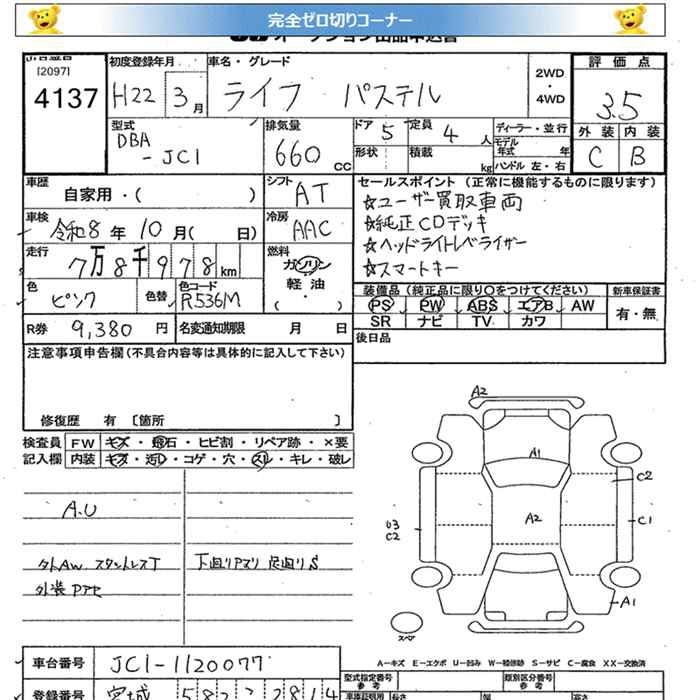 完全ゼロ切りコーナー
オークション出品申込書
[2097]
4137
初度登録年月
H22 3月
車名・グレード
ライフ パステル
2WD
・
4WD
評価点
3.5
外装 内装
C B
型式
DBA
-JC1
排気量
660 cc
ドア 5
定員 4 人
形状
積載 kg
ディーラー・並行
モデル年式 年
ハンドル 左・右
車歴
自家用・( )
シフト
AT
車検
令和8年10月( 日)
冷房
AAC
走行
7万8千978km
燃料
ガソリン
軽油
( )
色
ピンク
色替
色コード
R536M
R券 9,380円
名変通知期限 月 日
セールスポイント(正常に機能するものに限ります)
☆ユーザー買取車両
☆純正CDデッキ
☆ヘッドライトレベライザー
☆スマートキー
装備品(純正品に限り○をつけてください)
PS PW ABS エアB AW
SR ナビ TV カワ
新車保証書
有・無
後日品
注意事項申告欄(不具合内容等は具体的に記入して下さい)
修復歴 有 〔箇所 〕
検査員 FW キズ・飛石・ヒビ割・リペア跡・×要
記入欄 内装 キズ・汚レ・コゲ・穴・スレ・キレ・破レ
A.U
外AW スタットレスT
外装Pアセ
下廻りPサリ 足廻りS
A2
A1
C2
A2
C1
U3
C2
A1
スペア
A-キズ E-エクボ U-凹み W-補修跡 S-サビ C-腐食 XX-交換済
車台番号 JC1-1120077
登録番号 宮城 582 2814
型式指定番号
参考
類別区分番号
参考
長さ
幅
高さ